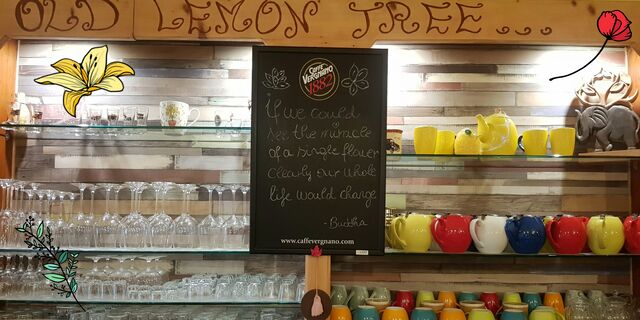 OLD LEMON TREE...
CAFFÈ
VERGNANO
1882
If we could
see the miracle
of a single flower
clearly our whole
life would change
- Buddha
www.caffevergnano.com